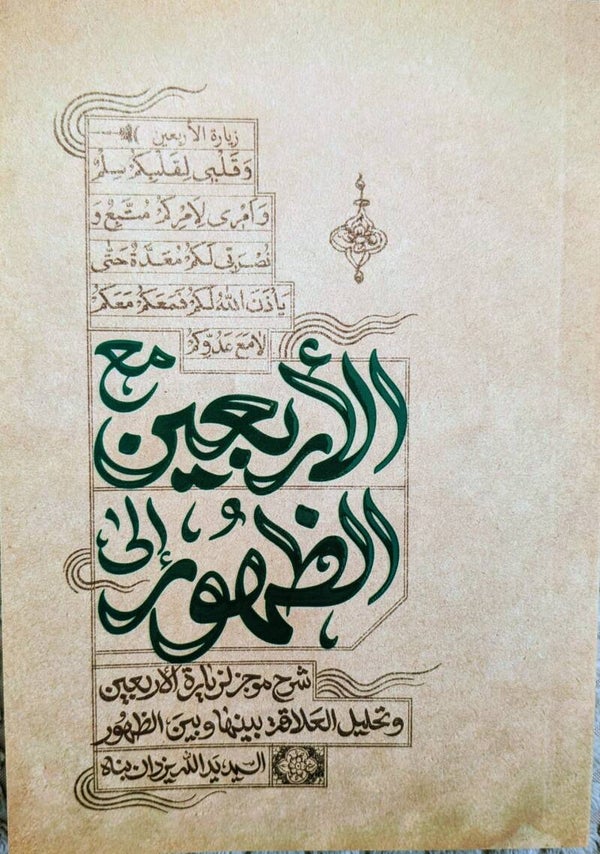 زيارة الأربعين
وَقَلْبى لِقَلْبِكُمْ سِلْمٌ
وَاَمْرى لِاَمْرِكُمْ مُتَّبِعٌ وَ
نُصْرَتى لَكُمْ مُعَدَّةٌ حَتّٰى
يَأْذَنَ اللّٰهُ لَكُمْ فَمَعَكُمْ مَعَكُمْ
لامَعَ عَدُوِّكُمْ
مع الأربعين
إلى الظهور
شرح موجز لزيارة الأربعين
وتحليل العلاقة بينها وبين الظهور
السيد يدالله يزدان بناه